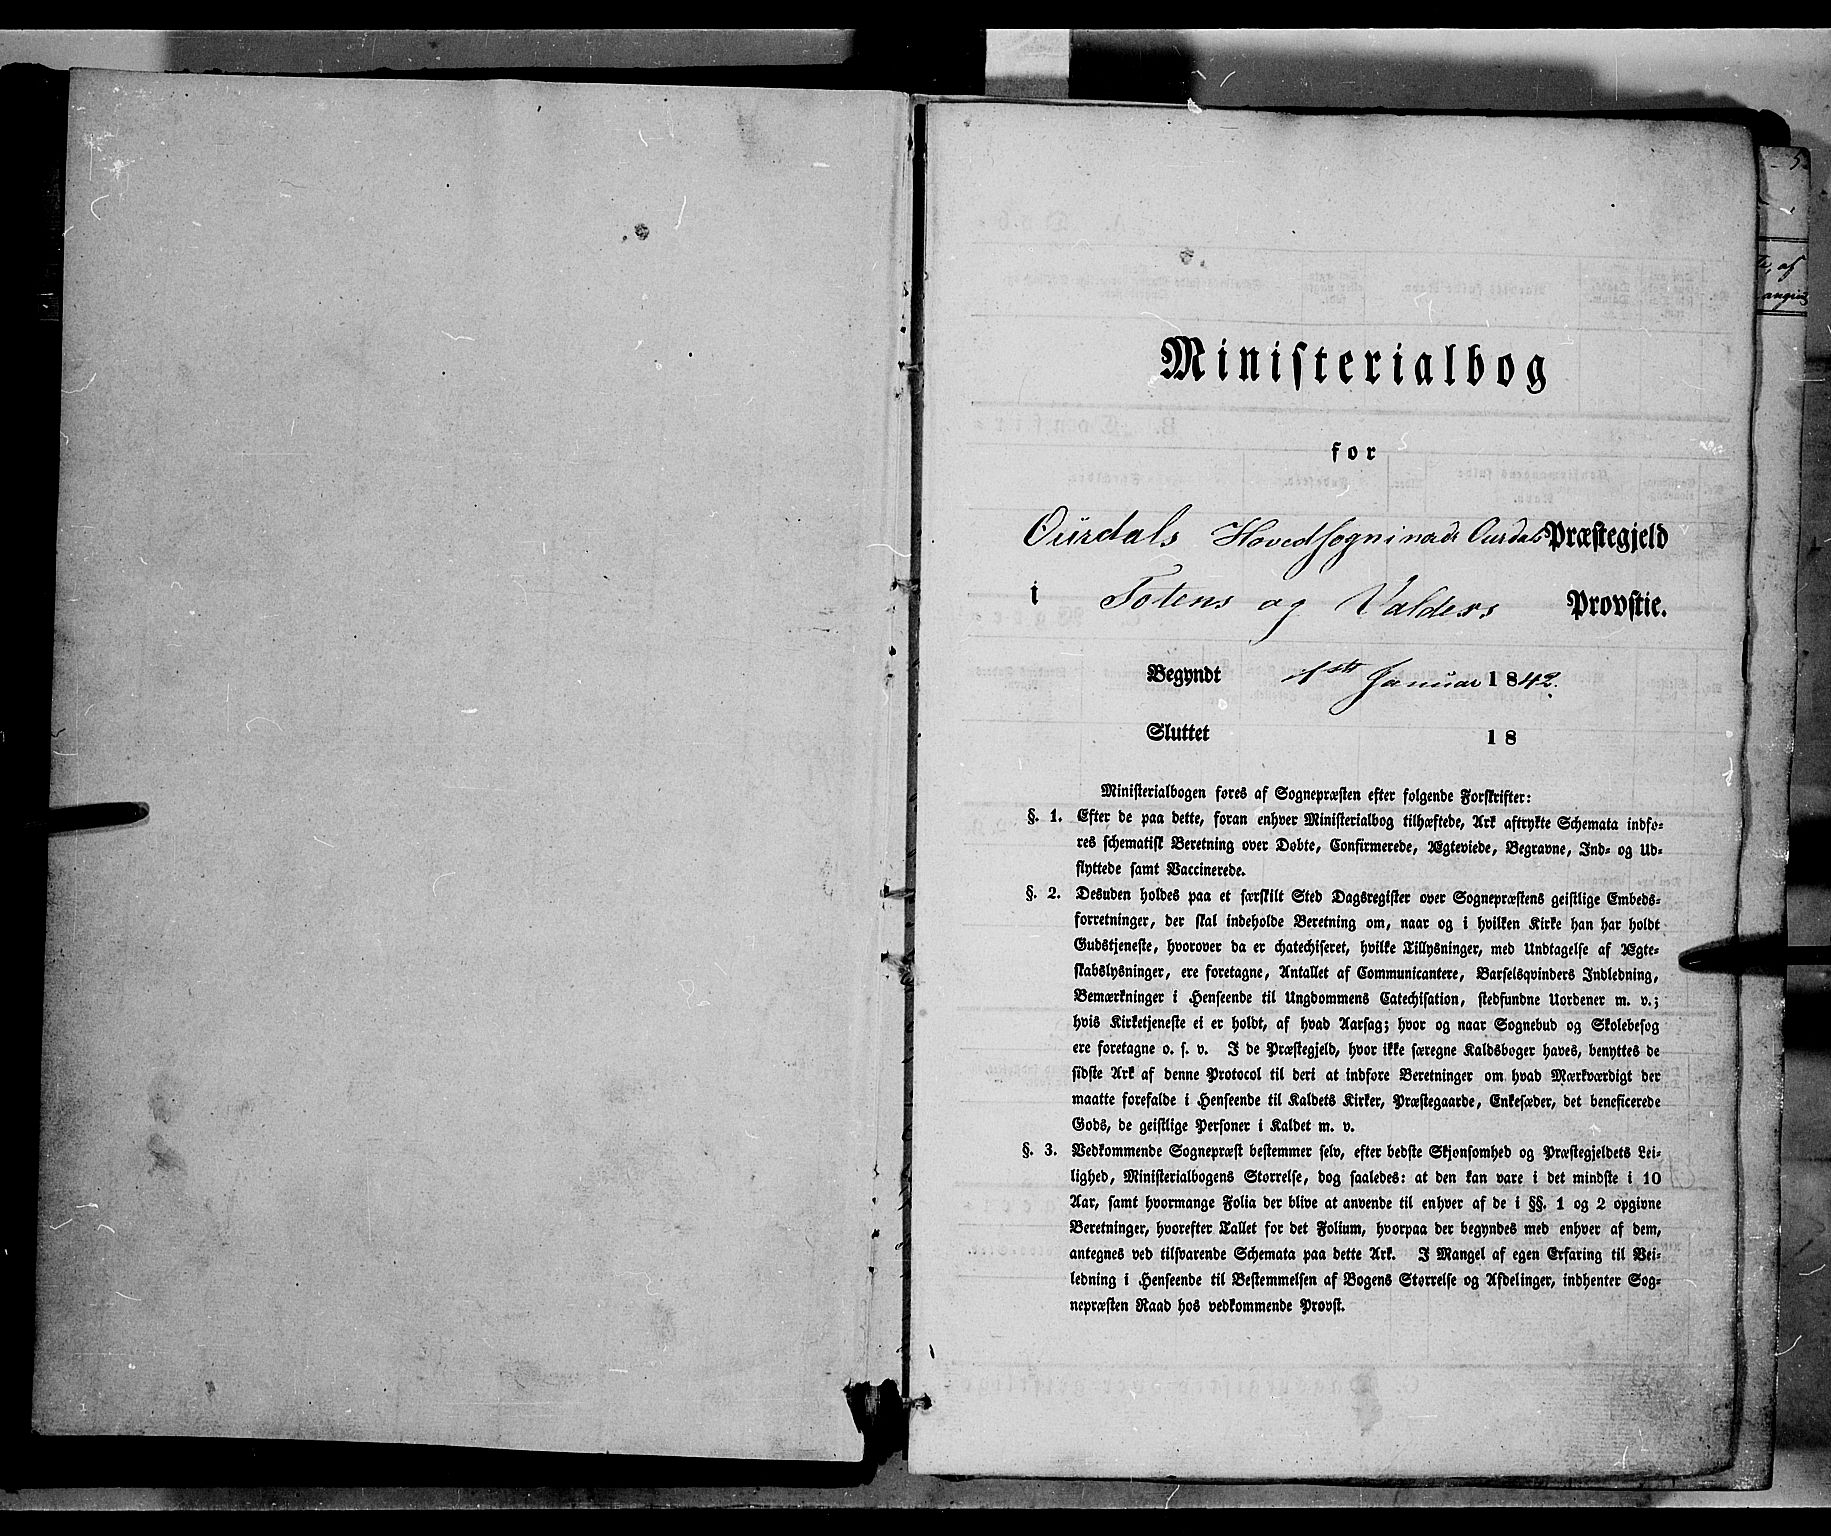 Ministerialbog
for
Ourdals Hovedsogn i nordr Ourdals Præstegjeld
i Totens og Valders Provstie.
Begyndt 1ste Januar 1842.
Sluttet 18
Ministerialbogen føres af Sognepræsten efter følgende Forskrifter:
§. 1. Efter de paa dette, foran enhver Ministerialbog tilhæftede, Ark aftrykte Schemata indfø-
res schematisk Beretning over Døbte, Confirmerede, Ægteviede, Begravne, Ind- og Ud-
flyttede samt Vaccinerede.
§. 2. Desuden holdes paa et særskilt Sted Dagsregister over Sognepræstens geistlige Embeds-
forretninger, der skal indeholde Beretning om, naar og i hvilken Kirke han har holdt
Gudstjeneste, hvorover da er chatechiseret, hvilke Tillysninger, med Undtagelse af Ægte-
skabslysninger, ere foretagne, Antallet af Communicantere, Barselqvinders Indledning,
Bemærkninger i Henseende til Ungdommens Catechisation, stedfundne Uordener m. v.;
hvis Kirketjeneste ei er holdt, af hvad Aarsag; hvor og naar Sognebud og Skolebesøg
ere foretagne o. s. v. I de Præstegjeld, hvor ikke særegne Kaldsbøger haves, benyttes de
sidste Ark af denne Protocol til deri at indføre Beretninger om hvad Mærkværdigt der
maatte forefalde i Henseende til Kaldets Kirker, Præstegaarde, Enkesæder, det beneficerede
Gods, de geistlige Personer i Kaldet m. v.
§. 3. Vedkommende Sognepræst bestemmer selv, efter bedste Skjønsomhed og Præstegjeldets Lei-
lighed, Ministerialbogens Størrelse, dog saaledes: at den kan vare i det mindste i 10
Aar, samt hvormange Folia der blive at anvende til enhver af de i §§. 1 og 2 opgivne
Beretninger, hvorefter Tallet for det Folium, hvorpaa der begyndes med enhver af dem,
antegnes ved tilsvarende Schemata paa dette Ark. I Mangel af egen Erfaring til Vei-
ledning i Henseende til Bestemmelsen af Bogens Størrelse og Afdelinger, indhenter Sog-
nepræsten Raad hos vedkommende Provst.